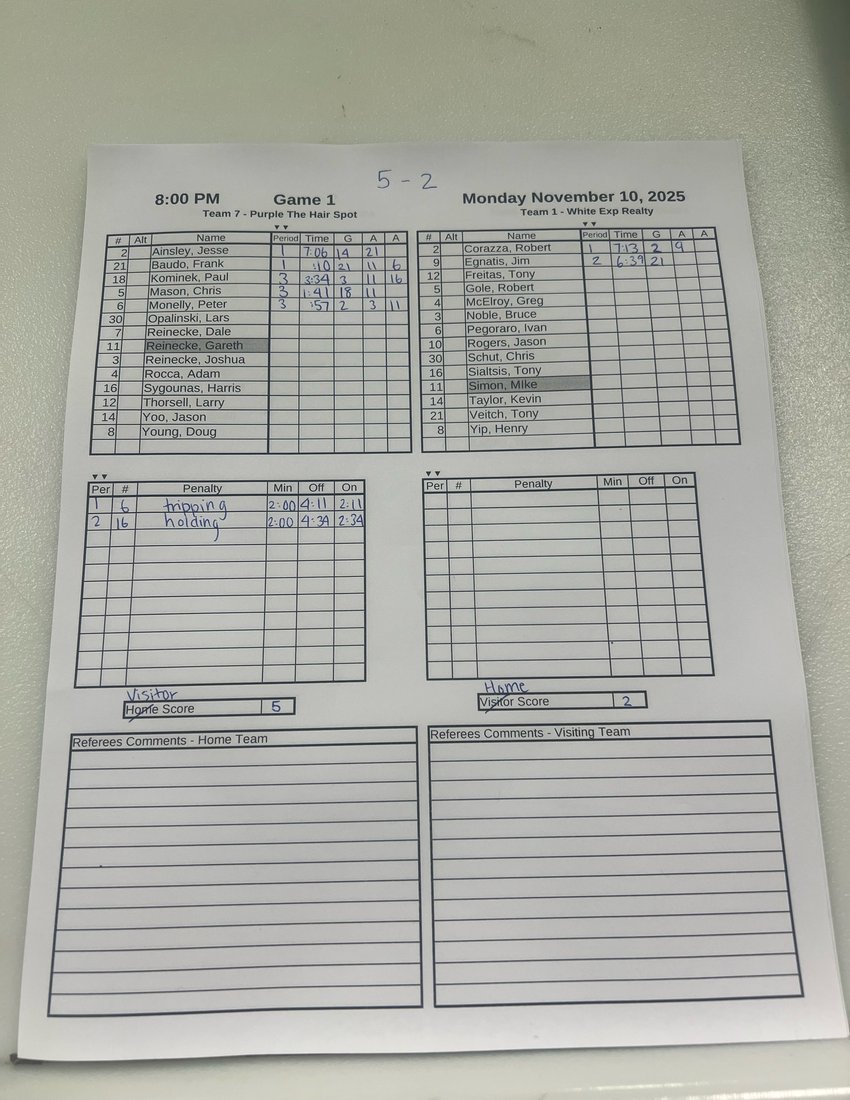 5 - 2
8:00 PM Game 1 Monday November 10, 2025
Team 7 - Purple The Hair Spot Team 1 - White Exp Realty
# Alt Name Period Time G A A
2 Ainsley, Jesse 1 7:06 14 21
21 Baudo, Frank 1 :10 21 11 6
18 Kominek, Paul 3 3:34 3 11 16
5 Mason, Chris 3 1:41 18 11
6 Monelly, Peter 3 :57 2 3 11
30 Opalinski, Lars
7 Reinecke, Dale
11 Reinecke, Gareth
3 Reinecke, Joshua
4 Rocca, Adam
16 Sygounas, Harris
12 Thorsell, Larry
14 Yoo, Jason
8 Young, Doug
# Alt Name Period Time G A A
2 Corazza, Robert 1 7:13 2 9
9 Egnatis, Jim 2 6:39 21
12 Freitas, Tony
5 Gole, Robert
4 McElroy, Greg
3 Noble, Bruce
6 Pegoraro, Ivan
10 Rogers, Jason
30 Schut, Chris
16 Sialtsis, Tony
11 Simon, MIke
14 Taylor, Kevin
21 Veitch, Tony
8 Yip, Henry
Per # Penalty Min Off On
1 6 tripping 2:00 4:11 2:11
2 16 holding 2:00 4:34 2:34
Per # Penalty Min Off On
Visitor
Home Score 5
Home
Visitor Score 2
Referees Comments - Home Team
Referees Comments - Visiting Team